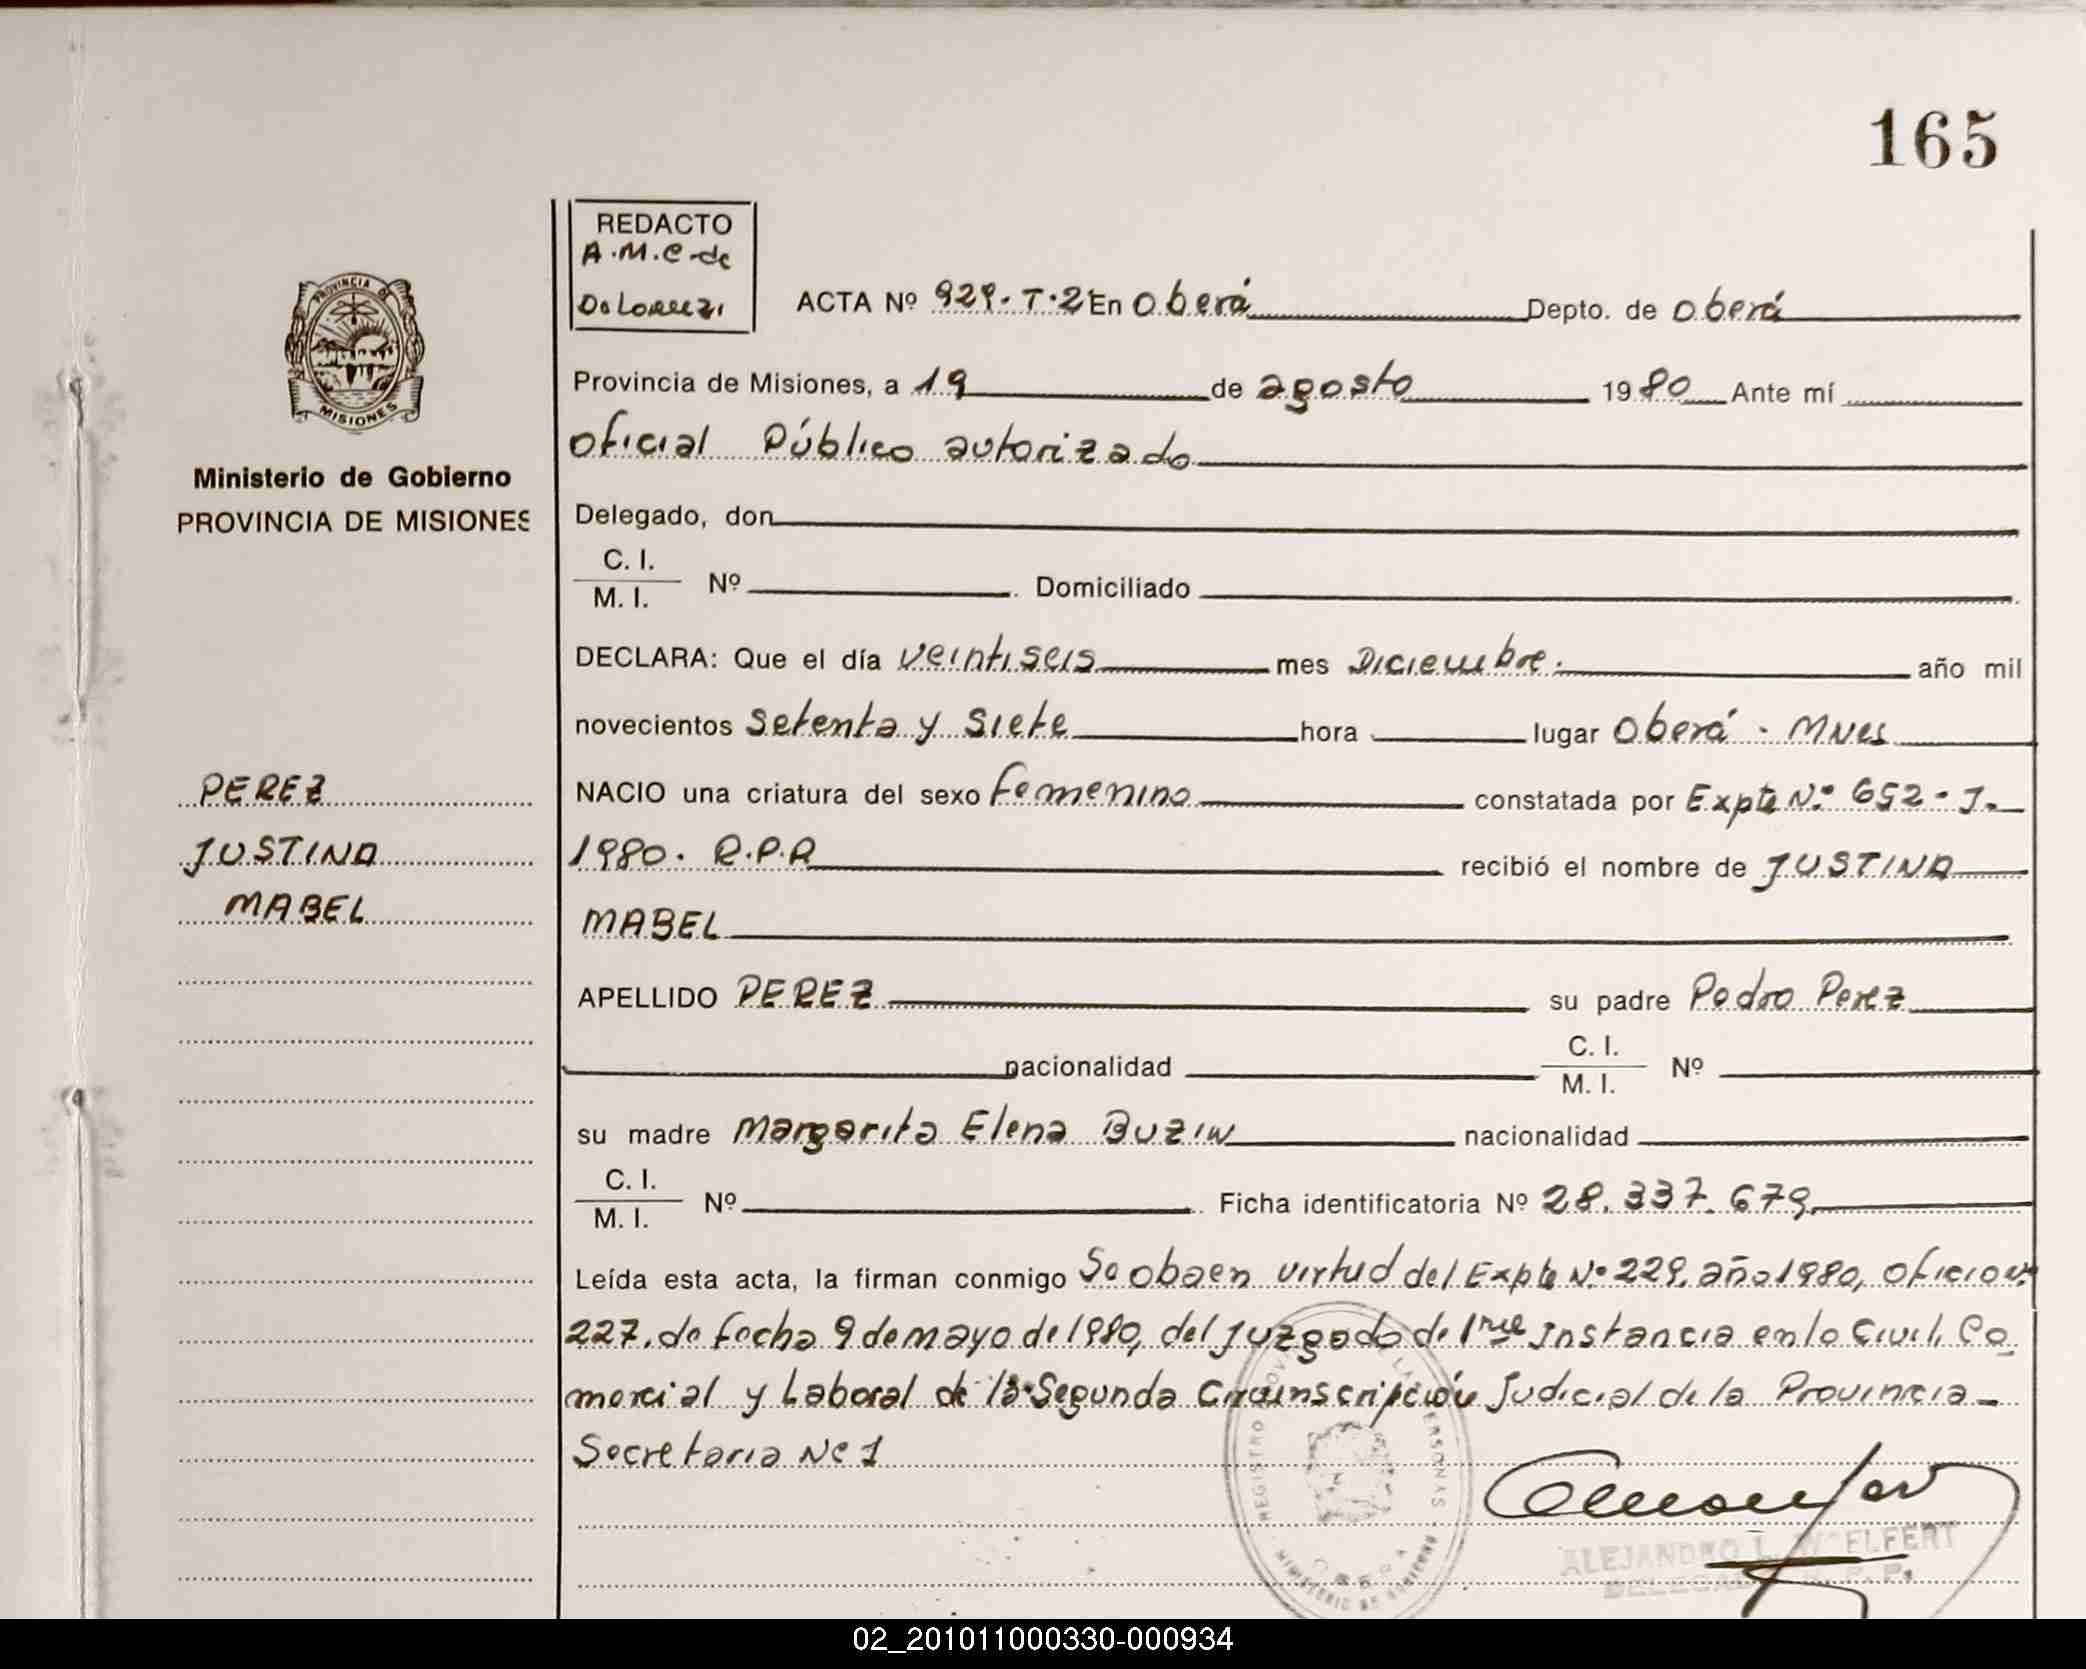 165
REDACTO
A.M.C. de
De Lorenzi
ACTA Nº 929. T. 2 En Oberá Depto. de Oberá
Provincia de Misiones, a 19 de agosto 1980 Ante mí
oficial Público autorizado
Delegado, don
C. I.
M. I. Nº . Domiciliado
DECLARA: Que el día veintiseis mes Diciembre. año mil
novecientos setenta y siete hora lugar Oberá - Mnes
NACIO una criatura del sexo femenino constatada por Expte Nº 652 - J.
1980. R.P.R recibió el nombre de JUSTINA
MABEL
APELLIDO PEREZ su padre Pedro Perez
nacionalidad C. I.
M. I. Nº
su madre Margarita Elena BUZIW nacionalidad
C. I.
M. I. Nº . Ficha identificatoria Nº 28.337.679
Leída esta acta, la firman conmigo Se obra en virtud del Expte Nº 229. año 1980, oficio Nº
227. de fecha 9 de mayo de 1980, del Juzgado de 1ra Instancia en lo Civil, Co
mercial y Laboral de la Segunda Circunscripción Judicial de la Provincia
Secretaria Nº 1
REGISTRO PROV DE LAS PERSONAS
OBERA
MINISTERIO DE GOBIERNO
ALEJANDRO L. WOELFERT
PROVINCIA DE
MISIONES
Ministerio de Gobierno
PROVINCIA DE MISIONES
PEREZ
JUSTINA
MABEL
02_201011000330-000934